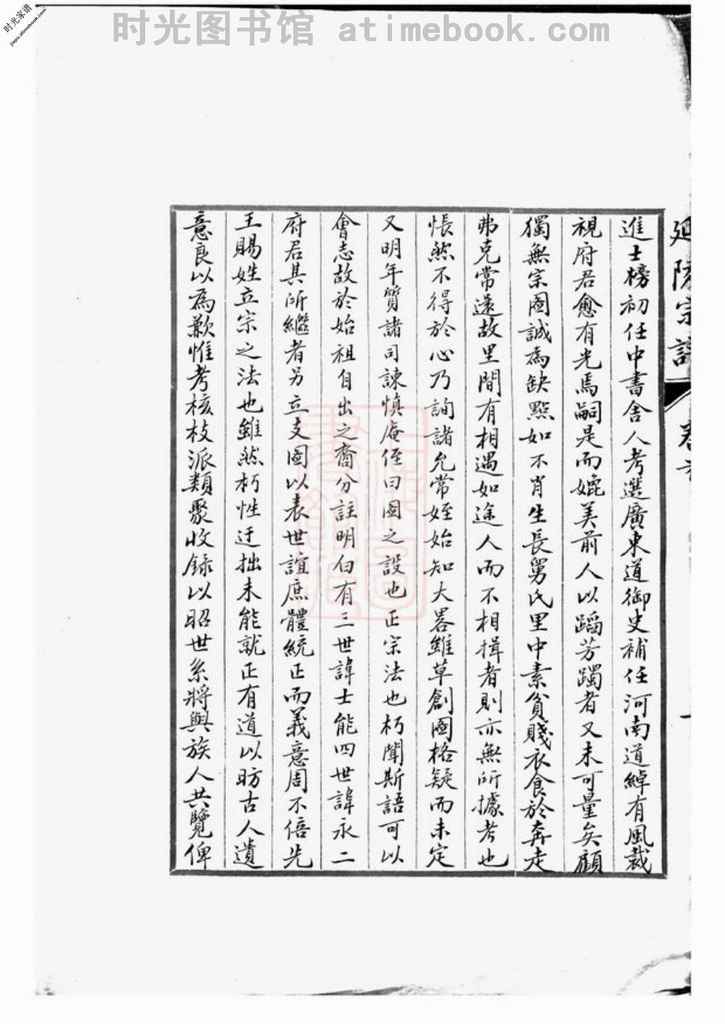 时光图书馆 atimebook.com
时光家谱
延陵宗譜
進士榜初任中書舍人考選廣東道御史補任河南道綽有風裁
視府君愈有光焉嗣是而媲美前人以蹈芳躅者又未可量矣顧
獨無宗圖誠為缺㸃如不肖生長舅氏里中素貧賤衣食於奔走
弗克常還故里間有相遇如途人而不相揖者則亦無所據考也
悵然不得於心乃詢諸允常姪始知大畧雖草創圖格疑而未定
又明年質諸司諫慎庵侄曰圖之設也正宗法也朽聞斯語可以
會志故於始祖自出之裔分註明白有三世諱士能四世諱永二
府君其所繼者另立支圖以表世誼庶體統正而義意周不倍先
王賜姓立宗之法也雖然朽性迂拙未能就正有道以昉古人遺
意良以為歉惟考核枝派類聚收録以昭世系將與族人共覽俾